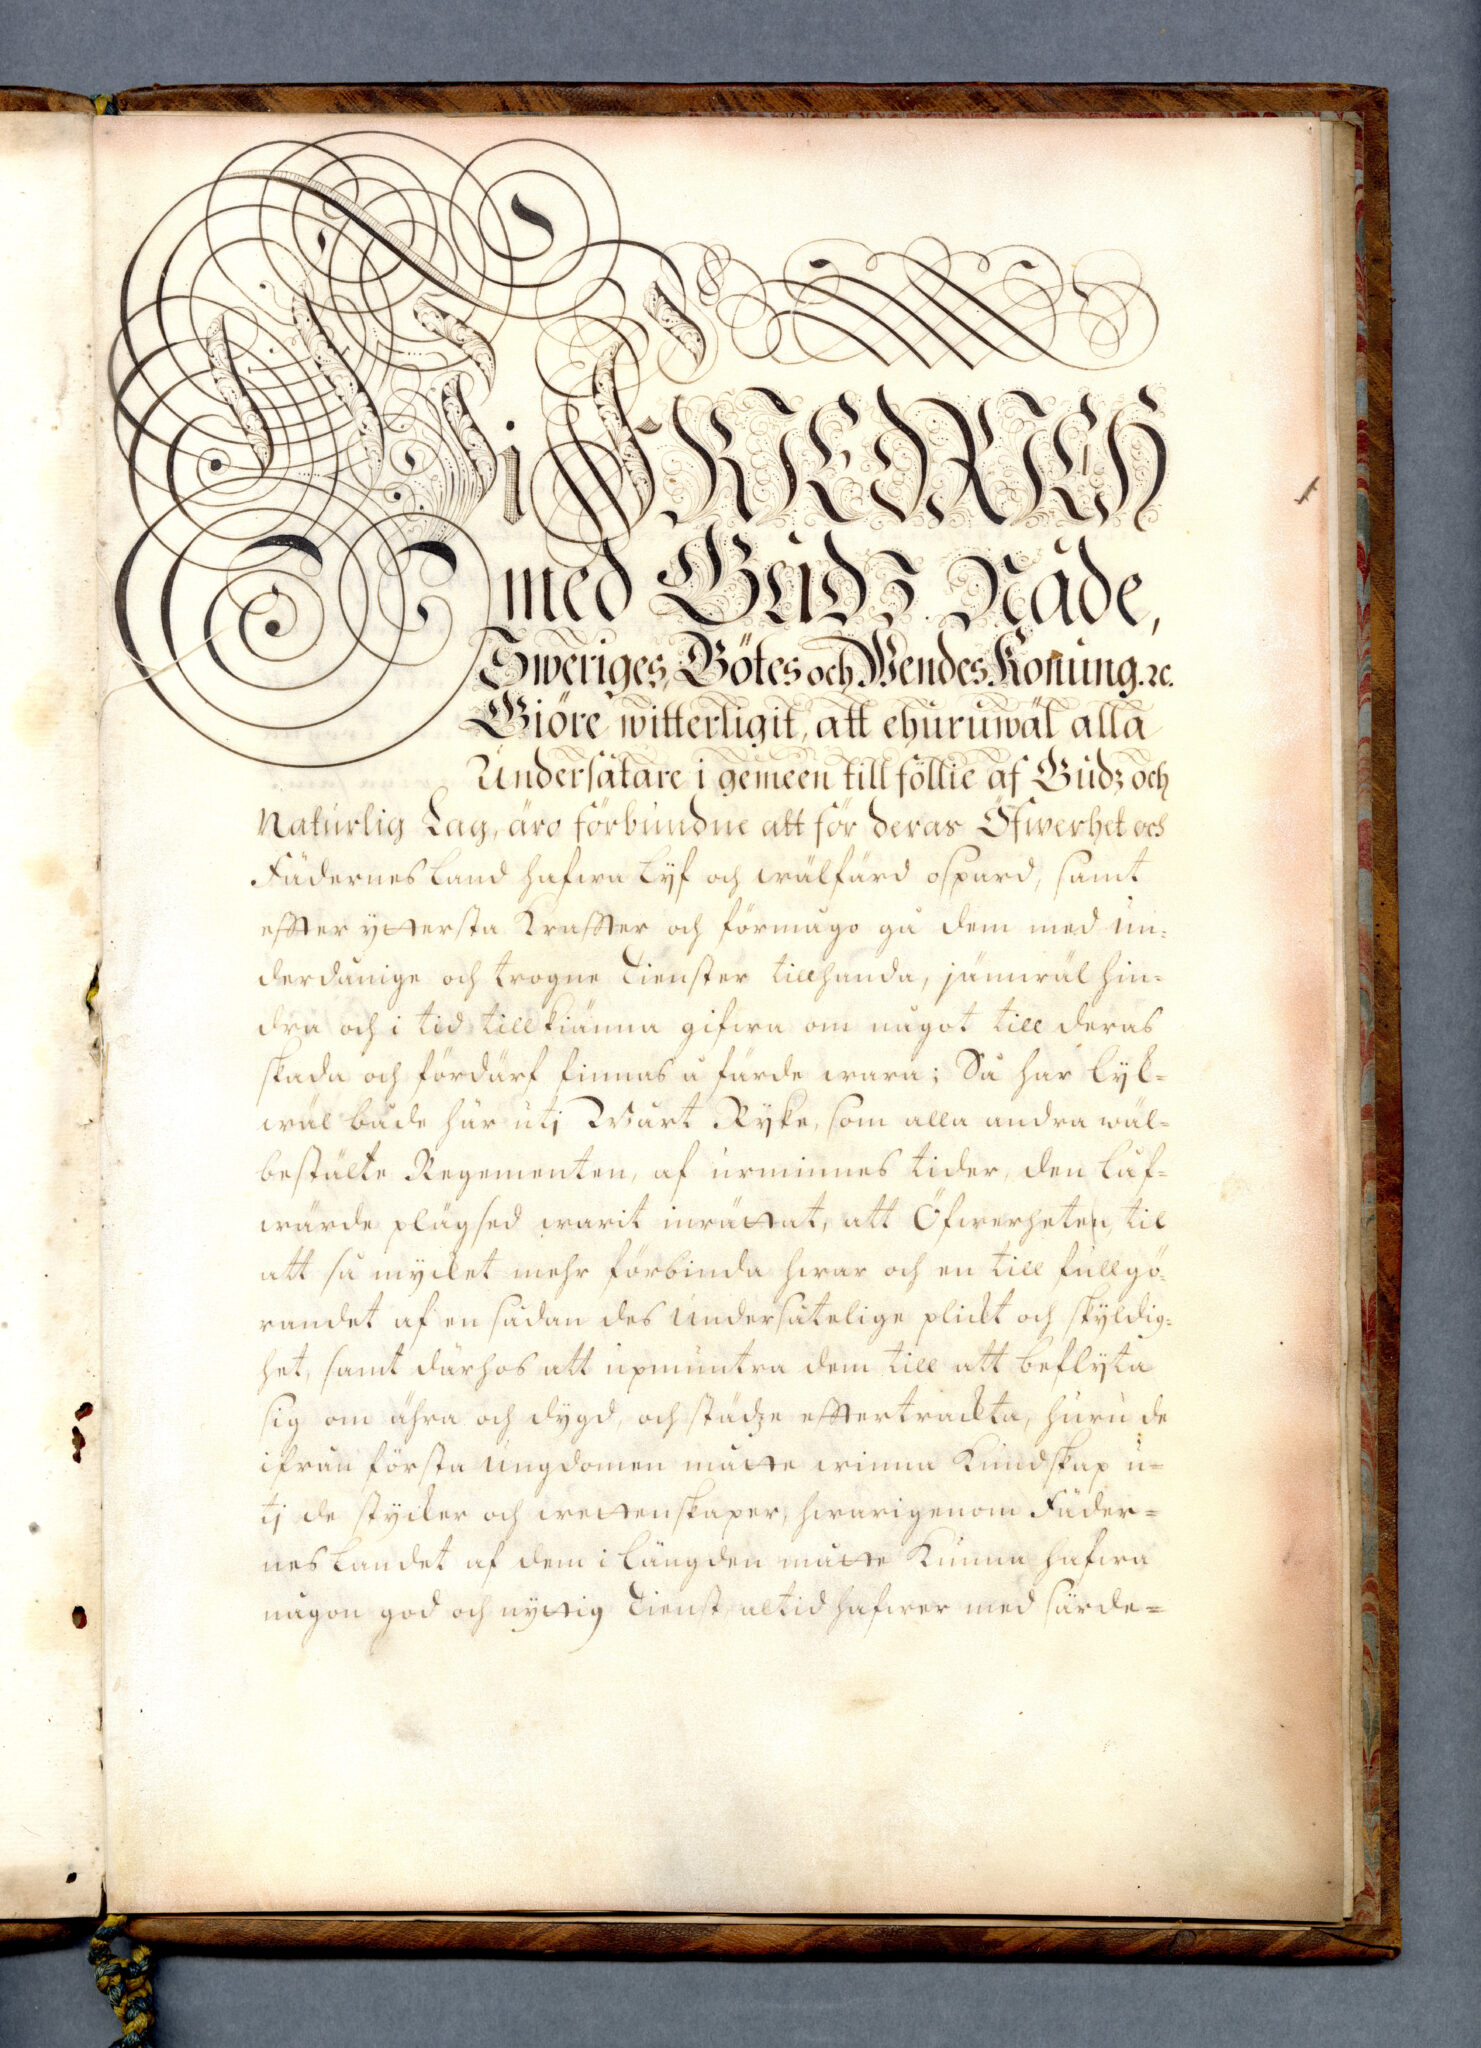 Wi FRIEDRICH
med Gudz Nåde,
Sweriges, Götes och Wendes Konung. ꝛc.
Giöre witterligit, att ehuruwäl alla
Undersåtare i gemeen till föllie af Gudz och
Naturlig Lag, äro förbundne att för deras Öfwerhet och
Fäderneslande hafwa lyf och wälfärd ospard, samt
effter yttersta kraffter och förmågo gå dem med un-
derdånige och trogne tienster tillhanda, jämwäl hin-
dra och i tid tillkiänna gifwa om något till deras
skada och fördärf finnas å färde wara; Så har lyk-
wäl både här utj Wårt Ryke, som alla andra wäl-
bestälte Regementen, af urminnes tider, den låf-
wärde plägsed warit inrättat, att Öfwerheten, til
att så mycket mehr förbinda hwar och en till fullgö-
randet af en sådan des undersåtelige plickt och skyldig-
het, samt därhos att upmuntra dem till att beflyta
sig om ähra och dygd, och städze efftertrackta, huru de
ifrån första ungdomen måtte winna kundskap u-
tj de stycker och wettenskaper, hwarigenom Fäder-
neslandet af dem i längden måtte kunna hafwa
någon god och nyttig tienst, altid hafwer med särde-